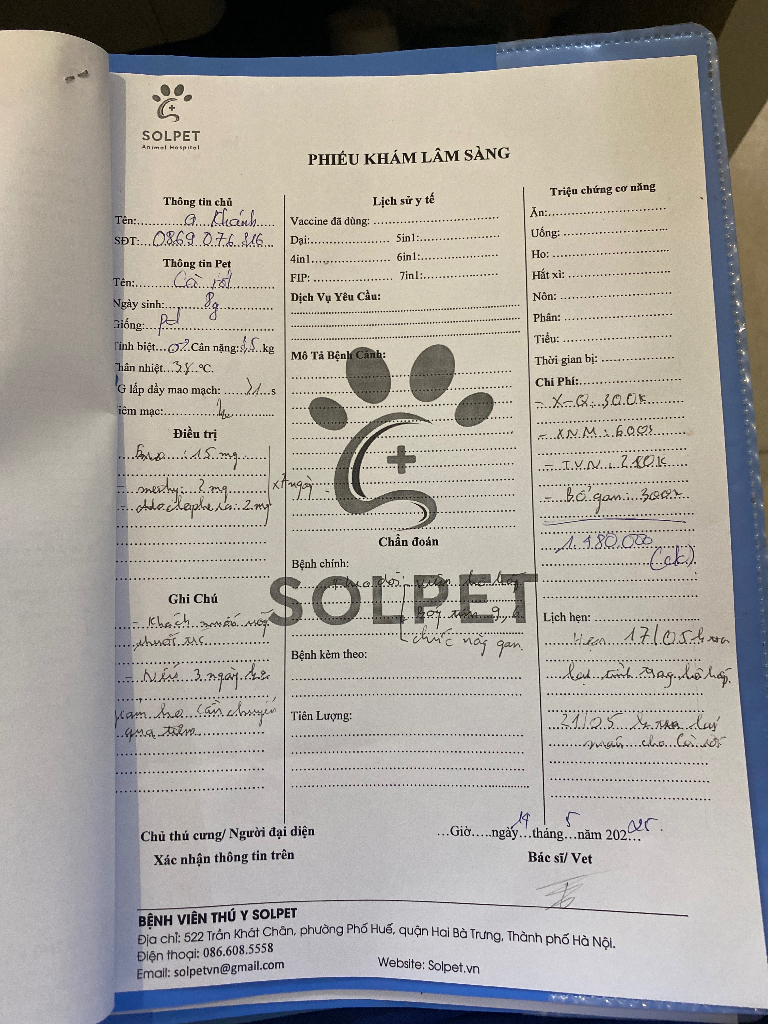 SOLPET
Animal Hospital
PHIẾU KHÁM LÂM SÀNG
Thông tin chủ
Tên: a. Khánh
SĐT: 0869 076 216
Thông tin Pet
Tên: Cà rốt
Ngày sinh: 8g
Giống:
Tính biệt... Cân nặng: kg
Thân nhiệt: 38 °C.
TG lấp đầy mao mạch: s
Niêm mạc:
Điều trị
: 15 mg
- : 2 mg
- : 2 mg
x 7 ngày
Ghi Chú
- Khách muốn
thuốc
- Nếu 3 ngày
cần chuyển
qua tiêm
Lịch sử y tế
Vaccine đã dùng:
Dại: 5in1:
4in1 6in1:
FIP: 7in1:
Dịch Vụ Yêu Cầu:
Mô Tả Bệnh Cảnh:
SOLPET
Chẩn đoán
Bệnh chính:
theo dõi viêm hô hấp
chức năng gan
Bệnh kèm theo:
Tiên Lượng:
Triệu chứng cơ năng
Ăn:
Uống:
Ho:
Hắt xì:
Nôn:
Phân:
Tiểu:
Thời gian bị:
Chi Phí:
- X-Q: 300k
- XNM: 600k
- T.V.N: 280k
- Bổ gan: 300k
1.480.000
(ck).
Lịch hẹn:
Hẹn 17/05 ktra
lại tình trạng hô hấp.
21/05 ktra lại
máu cho Cà rốt
Chủ thú cưng/ Người đại diện
Xác nhận thông tin trên
...Giờ.....ngày 14 tháng 5 năm 2025.
Bác sĩ/ Vet
BỆNH VIỆN THÚ Y SOLPET
Địa chỉ: 522 Trần Khát Chân, phường Phố Huế, quận Hai Bà Trưng, Thành phố Hà Nội.
Điện thoại: 086.608.5558
Email: solpetvn@gmail.com Website: Solpet.vn